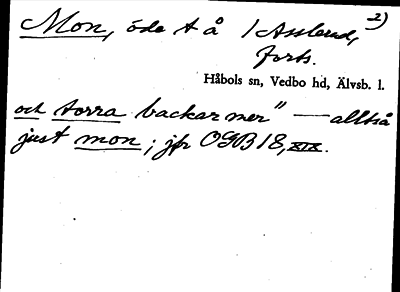 Mon, öde t å /Asslerud, 2)
forts.
Håbols sn, Vedbo hd, Älvsb. l.
och torra backar mer" — alltså
just mon; jfr OGB 18, XIX.